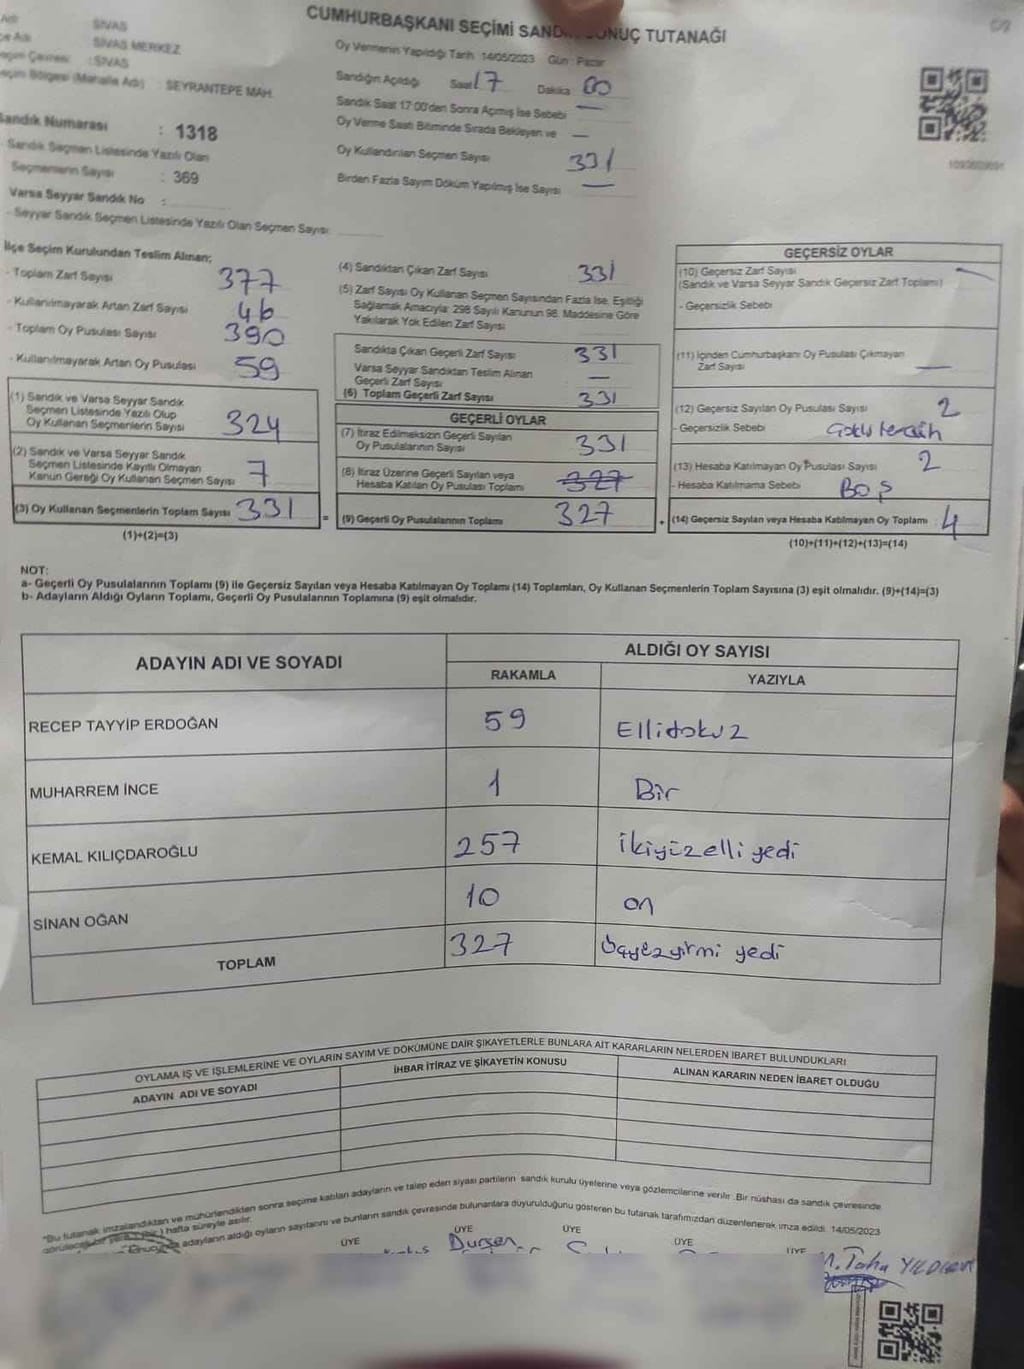 CUMHURBAŞKANI SEÇİMİ SONUÇ TUTANAĞI
SİVAS
SİVAS MERKEZ
: SİVAS
: SEYRANTEPE MAH.
Sandık Numarası : 1318
- Sandık Seçmen Listesinde Yazılı Olan
Seçmenlerin Sayısı : 369
Varsa Seyyar Sandık No :
- Seyyar Sandık Seçmen Listesinde Yazılı Olan Seçmen Sayısı
Oy Vermenin Yapıldığı Tarih 14/05/2023 Gün : Pazar
Sandığın Açıldığı Saat 17 Dakika 00
Sandık Saat 17:00'den Sonra Açılmış İse Sebebi —
Oy Verme Saati Bitiminde Sırada Bekleyen ve —
Oy Kullandırılan Seçmen Sayısı 331
Birden Fazla Sayım Döküm Yapılmış İse Sayısı —
İlçe Seçim Kurulundan Teslim Alınan;
- Toplam Zarf Sayısı 377
- Kullanılmayarak Artan Zarf Sayısı 46
- Toplam Oy Pusulası Sayısı 390
- Kullanılmayarak Artan Oy Pusulası 59
(1) Sandık ve Varsa Seyyar Sandık
Seçmen Listesinde Yazılı Olup
Oy Kullanan Seçmenlerin Sayısı 324
(2) Sandık ve Varsa Seyyar Sandık
Seçmen Listesinde Kayıtlı Olmayan
Kanun Gereği Oy Kullanan Seçmen Sayısı 7
(3) Oy Kullanan Seçmenlerin Toplam Sayısı 331 =
(1)+(2)=(3)
(4) Sandıktan Çıkan Zarf Sayısı 331
(5) Zarf Sayısı Oy Kullanan Seçmen Sayısından Fazla İse, Eşitliği
Sağlamak Amacıyla; 298 Sayılı Kanunun 98. Maddesine Göre
Yakılarak Yok Edilen Zarf Sayısı
Sandıkta Çıkan Geçerli Zarf Sayısı 331
Varsa Seyyar Sandıktan Teslim Alınan
Geçerli Zarf Sayısı —
(6) Toplam Geçerli Zarf Sayısı 331
GEÇERLİ OYLAR
(7) İtiraz Edilmeksizin Geçerli Sayılan
Oy Pusulalarının Sayısı 331
(8) İtiraz Üzerine Geçerli Sayılan veya
Hesaba Katılan Oy Pusulası Toplamı 327
(9) Geçerli Oy Pusulalarının Toplamı 327 +
GEÇERSİZ OYLAR
(10) Geçersiz Zarf Sayısı —
(Sandık ve Varsa Seyyar Sandık Geçersiz Zarf Toplamı)
- Geçersizlik Sebebi
(11) İçinden Cumhurbaşkanı Oy Pusulası Çıkmayan
Zarf Sayısı —
(12) Geçersiz Sayılan Oy Pusulası Sayısı 2
- Geçersizlik Sebebi Çoklu tercih
(13) Hesaba Katılmayan Oy Pusulası Sayısı 2
- Hesaba Katılmama Sebebi BOŞ
(14) Geçersiz Sayılan veya Hesaba Katılmayan Oy Toplamı 4
(10)+(11)+(12)+(13)=(14)
NOT:
a- Geçerli Oy Pusulalarının Toplamı (9) ile Geçersiz Sayılan veya Hesaba Katılmayan Oy Toplamı (14) Toplamları, Oy Kullanan Seçmenlerin Toplam Sayısına (3) eşit olmalıdır. (9)+(14)=(3)
b- Adayların Aldığı Oyların Toplamı, Geçerli Oy Pusulalarının Toplamına (9) eşit olmalıdır.
ADAYIN ADI VE SOYADI
ALDIĞI OY SAYISI
RAKAMLA YAZIYLA
RECEP TAYYİP ERDOĞAN 59 Ellidokuz
MUHARREM İNCE 1 Bir
KEMAL KILIÇDAROĞLU 257 ikiyüzelli yedi
SİNAN OĞAN 10 on
TOPLAM 327 üçyüzyirmi yedi
OYLAMA İŞ VE İŞLEMLERİNE VE OYLARIN SAYIM VE DÖKÜMÜNE DAİR ŞİKAYETLERLE BUNLARA AİT KARARLARIN NELERDEN İBARET BULUNDUKLARI
ADAYIN ADI VE SOYADI
İHBAR İTİRAZ VE ŞİKAYETİN KONUSU
ALINAN KARARIN NEDEN İBARET OLDUĞU
"Bu tutanak imzalandıktan ve mühürlendikten sonra seçime katılan adayların ve talep eden siyasi partilerin sandık kurulu üyelerine veya gözlemcilerine verilir. Bir nüshası da sandık çevresinde
hafta süreyle asılır.
adayların aldığı oyların sayılarını ve bunların sandık çevresinde bulunanlara duyurulduğunu gösteren bu tutanak tarafımızdan düzenlenerek imza edildi. 14/05/2023
ÜYE ÜYE ÜYE ÜYE ÜYE
Dursen
M. Taha YILDIRIM